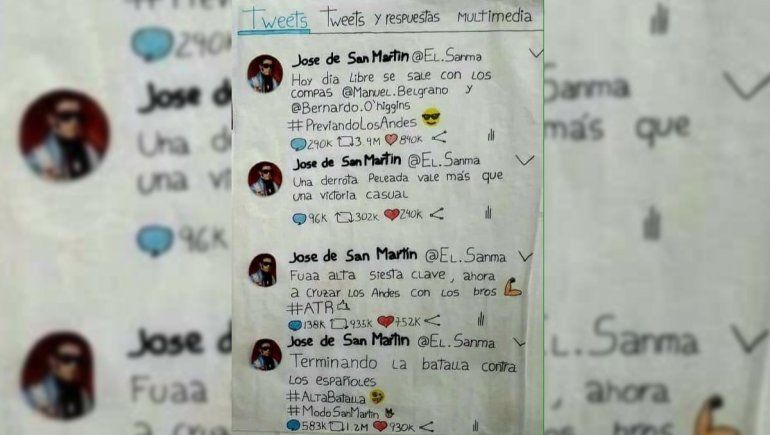 Tweets Tweets y respuestas Multimedia
Jose de San Martin @El.Sanma
Hoy día libre se sale con los
compas @Manuel.Belgrano y
@Bernardo.O'higgins
#PreviandoLosAndes
290K 3.4M 840K
Jose de San Martin @El.Sanma
Una derrota peleada vale más que
una victoria casual
96K 302K 240K
Jose de San Martín @El.Sanma
Fuaa alta siesta clave, ahora
a cruzar los Andes con los bros
#ATR
138K 935K 752K
Jose de San Martin @El.Sanma
Terminando la batalla contra
los españoles
#AltaBatalla
#ModoSanMartin
583K 1.2M 930K